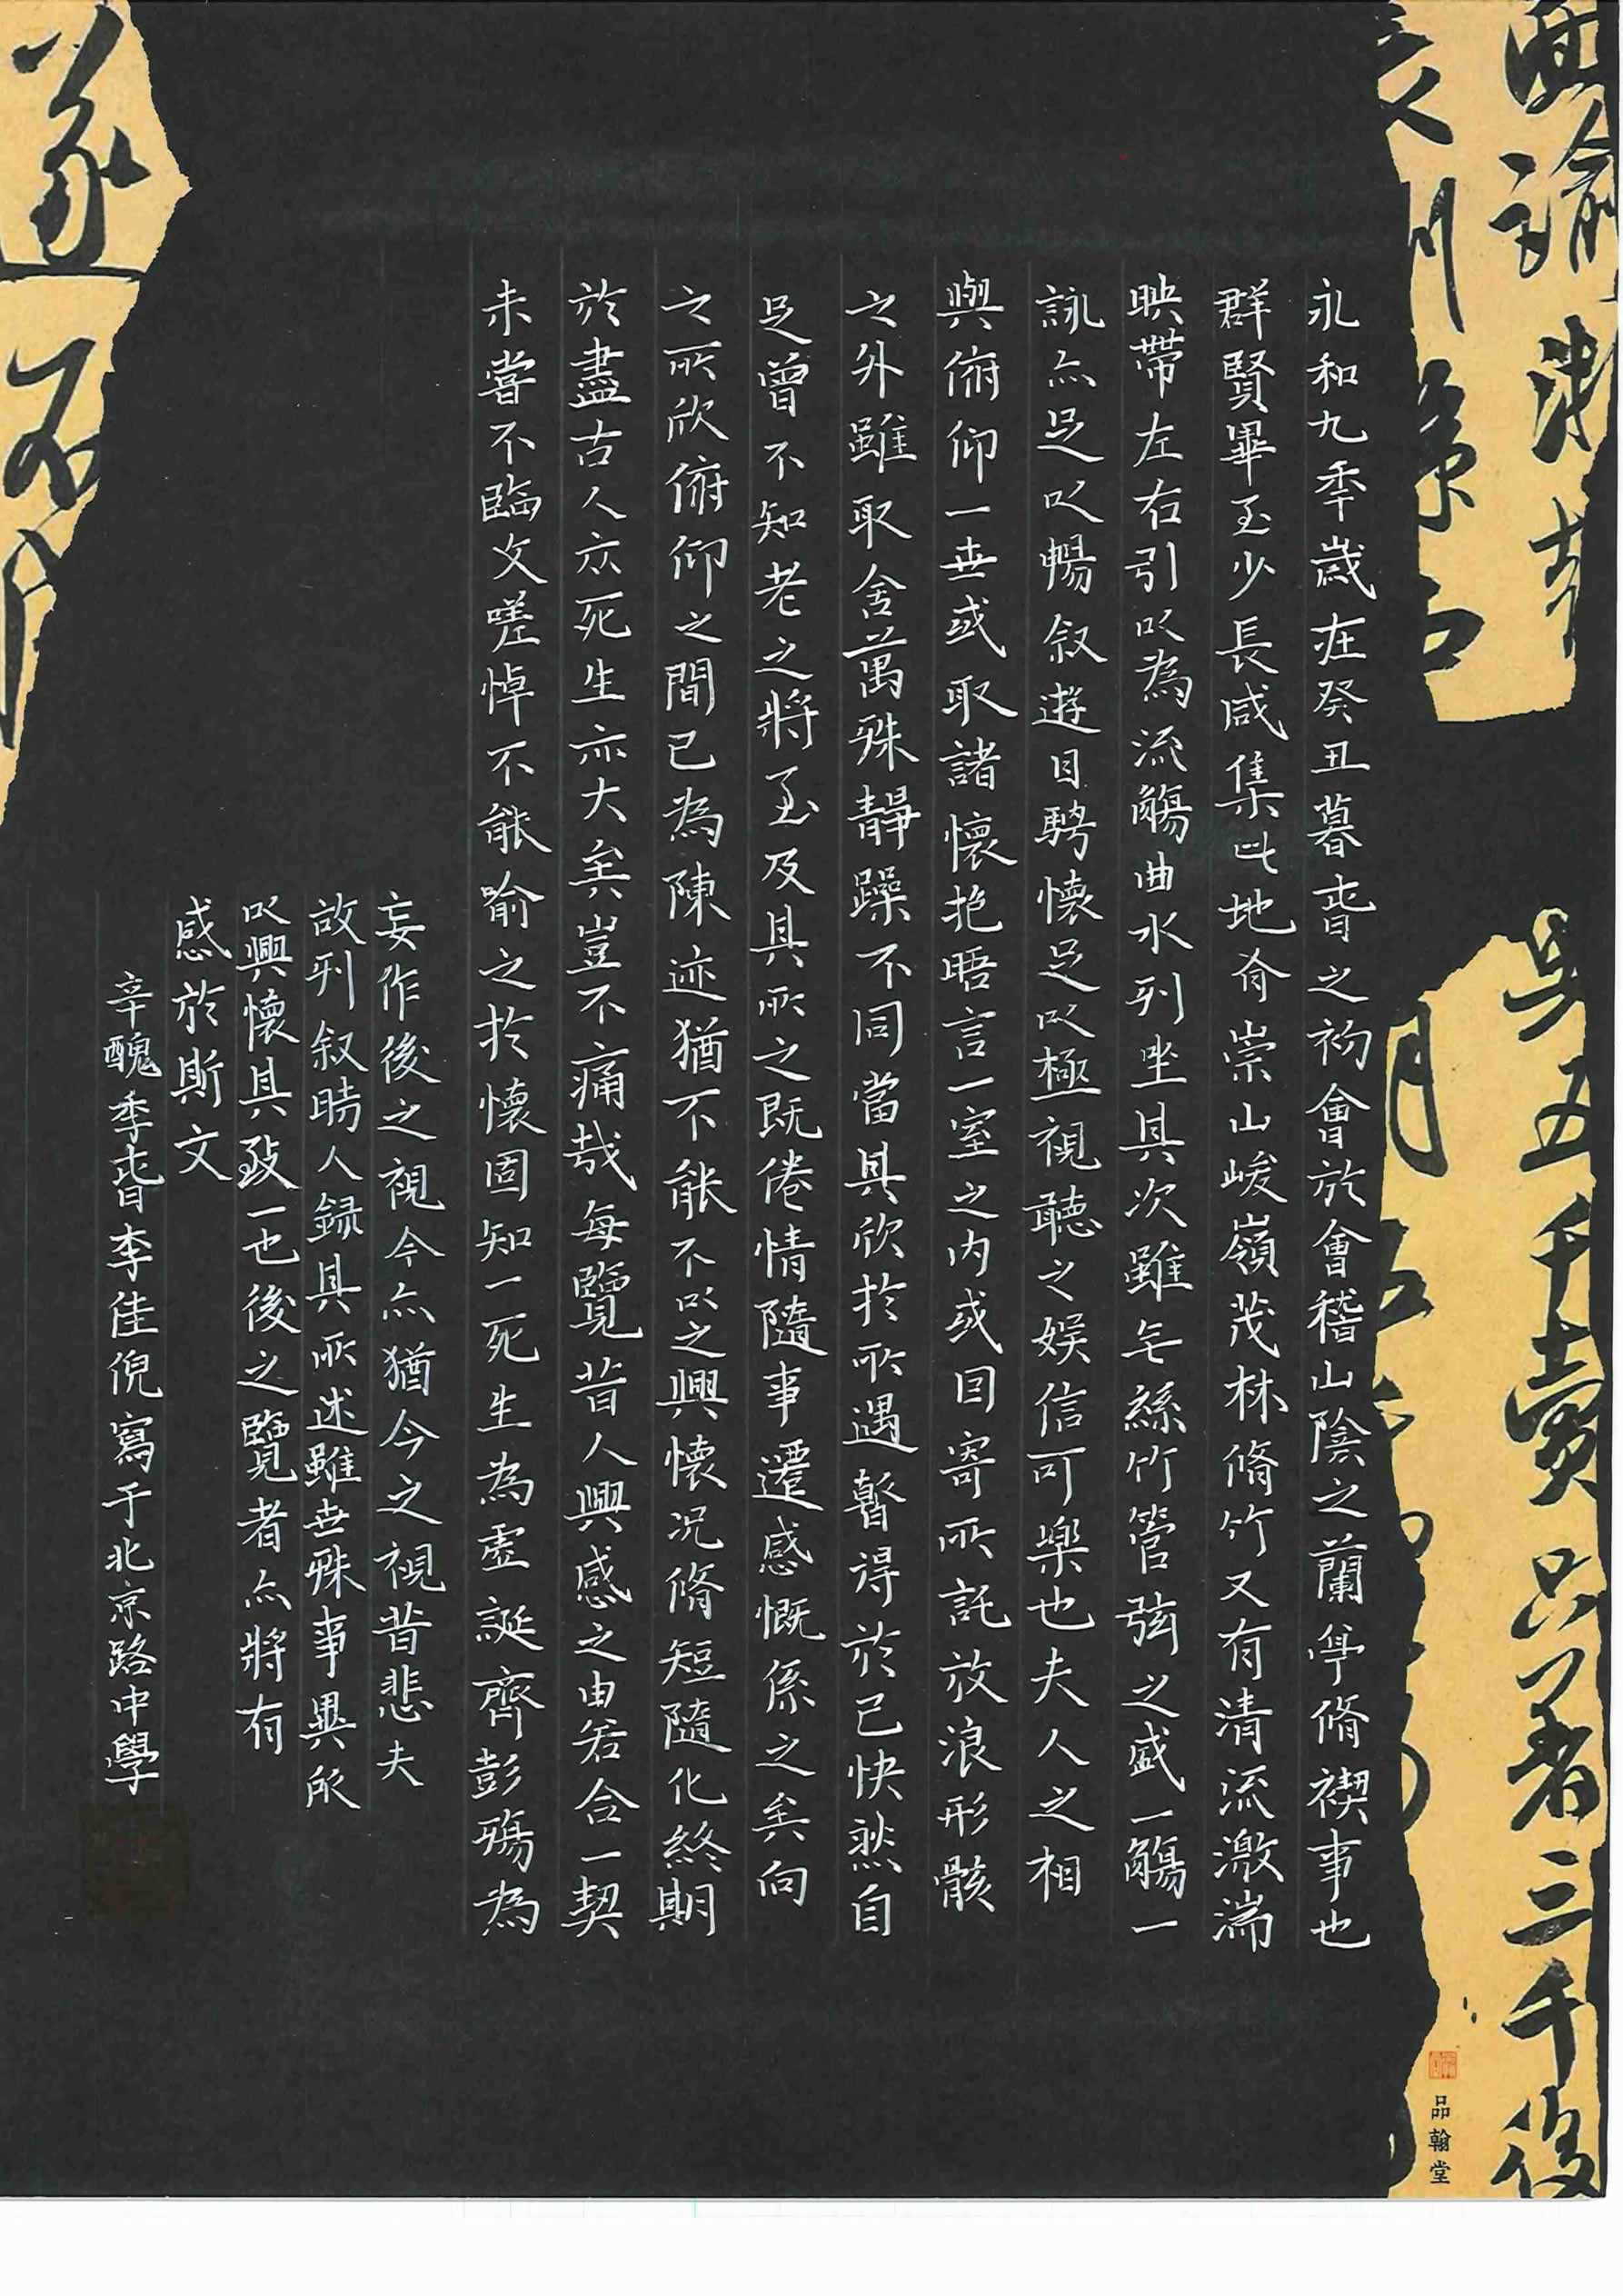 永和九秊歲在癸丑暮旾之初會於會稽山陰之蘭亭脩禊事也
群賢畢至少長咸集此地有崇山峻嶺茂林脩竹又有清流激湍
映帶左右引以為流觴曲水列坐其次雖无絲竹管弦之盛一觴一
詠亦足以暢叙遊目騁懷足以極視聽之娛信可樂也夫人之相
與俯仰一世或取諸懷抱晤言一室之內或因寄所託放浪形骸
之外雖取舍萬殊靜躁不同當其欣於所遇暫得於己快然自
足曾不知老之將至及其所之既倦情隨事遷感慨係之矣向
之所欣俯仰之間已為陳迹猶不能不以之興懷況脩短隨化終期
於盡古人云死生亦大矣豈不痛哉每覽昔人興感之由若合一契
未嘗不臨文嗟悼不能喻之於懷固知一死生為虛誕齊彭殤為
妄作後之視今亦猶今之視昔悲夫
故列叙時人錄其所述雖世殊事異所
以興懷其致一也後之覽者亦將有
感於斯文
辛醜秊旾李佳倪寫于北京路中學
吳五千賣只著三千後
遂不
品翰堂